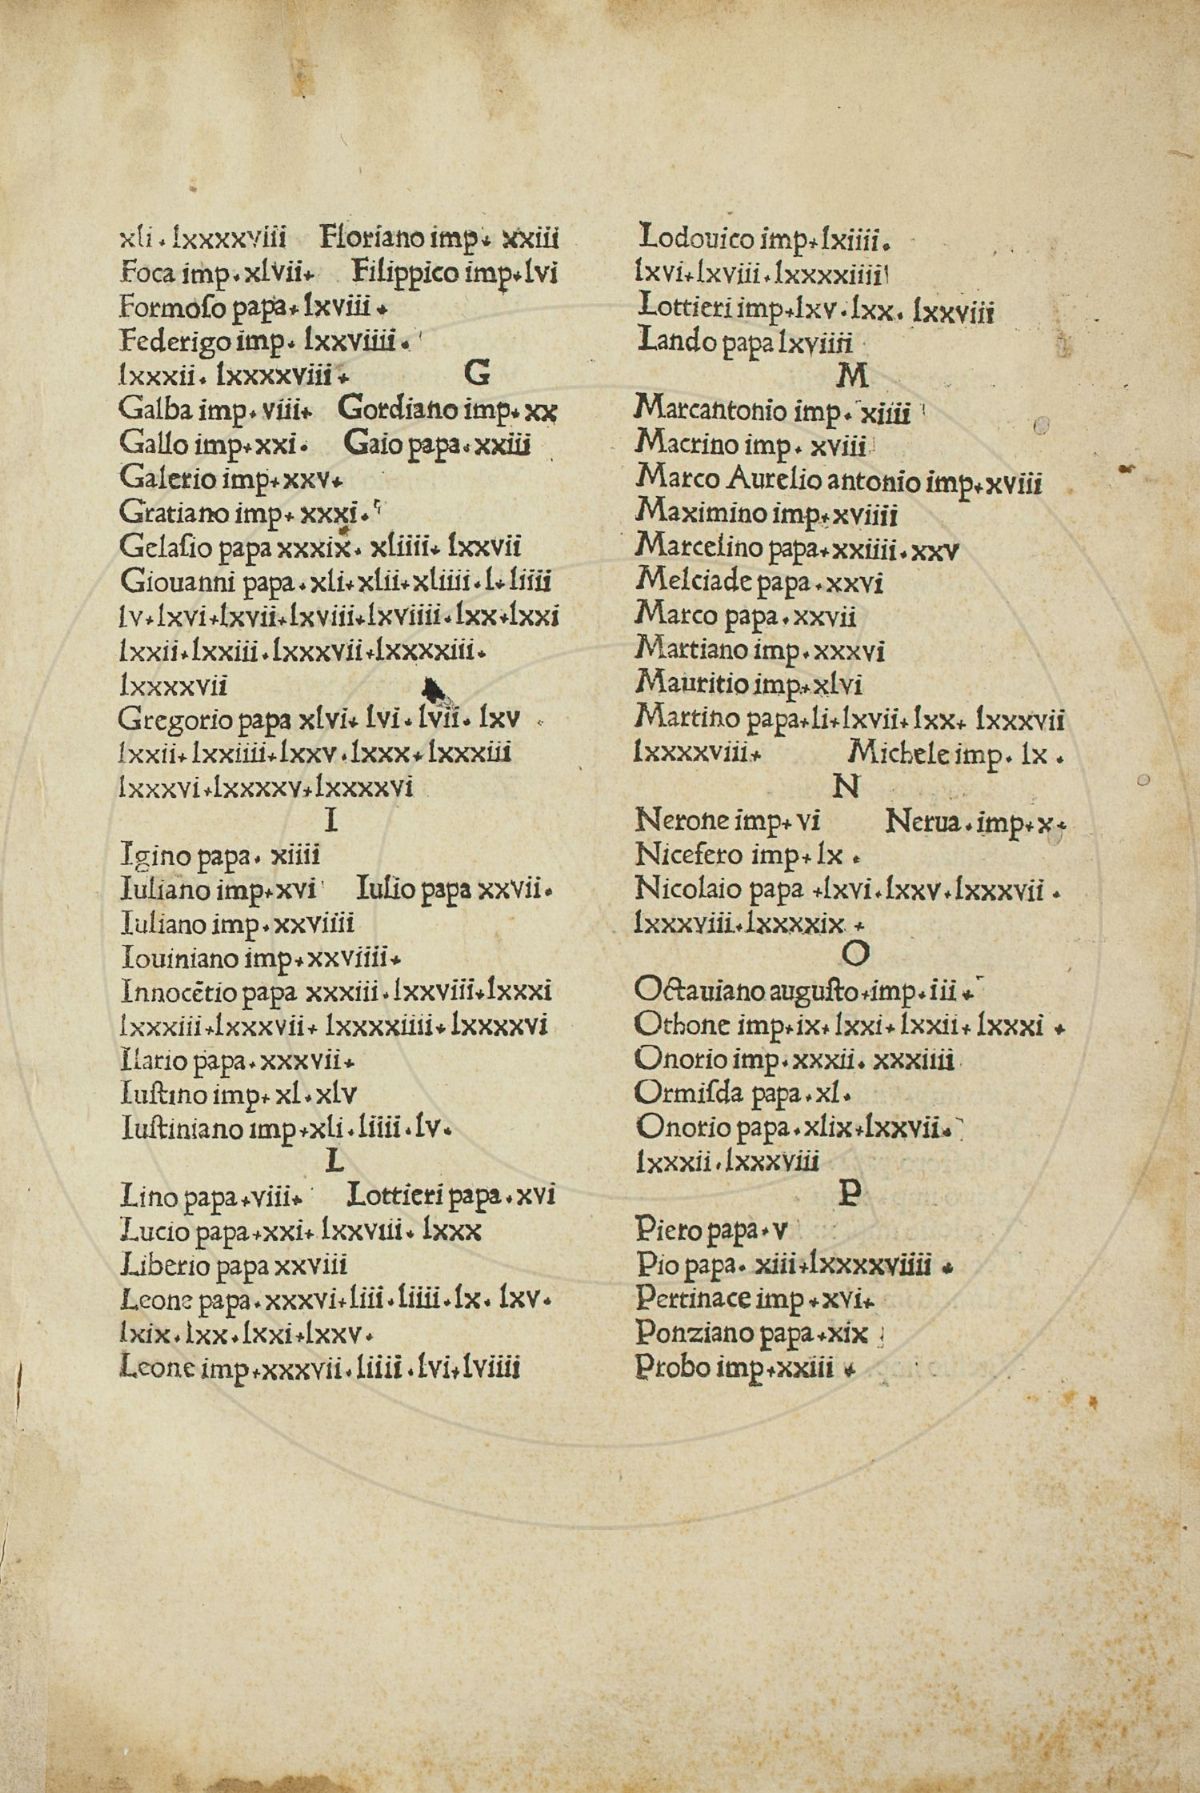 xli. lxxxxviii Floriano imp. xxiii
Foca imp. xlvii. Filippico imp. lvi
Formoſo papa. lxviii.
Federigo imp. lxxviiii.
lxxxii. lxxxxviii. G
Galba imp. viii. Gordiano imp. xx
Gallo imp. xxi. Gaio papa. xxiii
Galerio imp. xxv.
Gratiano imp. xxxi.
Gelaſio papa xxxix. xliiii. lxxvii
Giouanni papa. xli. xlii. xliiii. l. liiii
lv. lxvi. lxvii. lxviii. lxviiii. lxx. lxxi
lxxii. lxxiii. lxxxvii. lxxxxiii.
lxxxxvii
Gregorio papa xlvi. lvi. lvii. lxv
lxxii. lxxiiii. lxxv. lxxx. lxxxiii
lxxxvi. lxxxxv. lxxxxvi
I
Igino papa. xiiii
Iuliano imp. xvi Iulio papa xxvii.
Iuliano imp. xxviiii
Iouiniano imp. xxviiii.
Innocētio papa xxxiii. lxxviii. lxxxi
lxxxiii. lxxxvii. lxxxxiiii. lxxxxvi
Ilario papa. xxxvii.
Iuſtino imp. xl. xlv
Iuſtiniano imp. xli. liiii. lv.
L
Lino papa. viii. Lottieri papa. xvi
Lucio papa. xxi. lxxviii. lxxx
Liberio papa xxviii
Leone papa. xxxvi. liii. liiii. lx. lxv.
lxix. lxx. lxxi. lxxv.
Leone imp. xxxvii. liiii. lvi. lviiii
Lodouico imp. lxiiii.
lxvi. lxviii. lxxxxiiii
Lottieri imp. lxv. lxx. lxxviii
Lando papa lxviiii
M
Marcantonio imp. xiiii
Macrino imp. xviii
Marco Aurelio antonio imp. xviii
Maximino imp. xviiii
Marcelino papa. xxiiii. xxv
Melciade papa. xxvi
Marco papa. xxvii
Martiano imp. xxxvi
Mauritio imp. xlvi
Martino papa. li. lxvii. lxx. lxxxvii
lxxxxviii. Michele imp. lx.
N
Nerone imp. vi Nerua. imp. x.
Nicefero imp. lx.
Nicolaio papa. lxvi. lxxv. lxxxvii.
lxxxviii. lxxxxix.
O
Octauiano auguſto. imp. iii.
Othone imp. ix. lxxi. lxxii. lxxxi.
Onorio imp. xxxii. xxxiiii
Ormiſda papa. xl.
Onorio papa. xlix. lxxvii.
lxxxii. lxxxviii
P
Piero papa. v
Pio papa. xiii. lxxxxviiii.
Pertinace imp. xvi.
Ponziano papa. xix
Probo imp. xxiii.